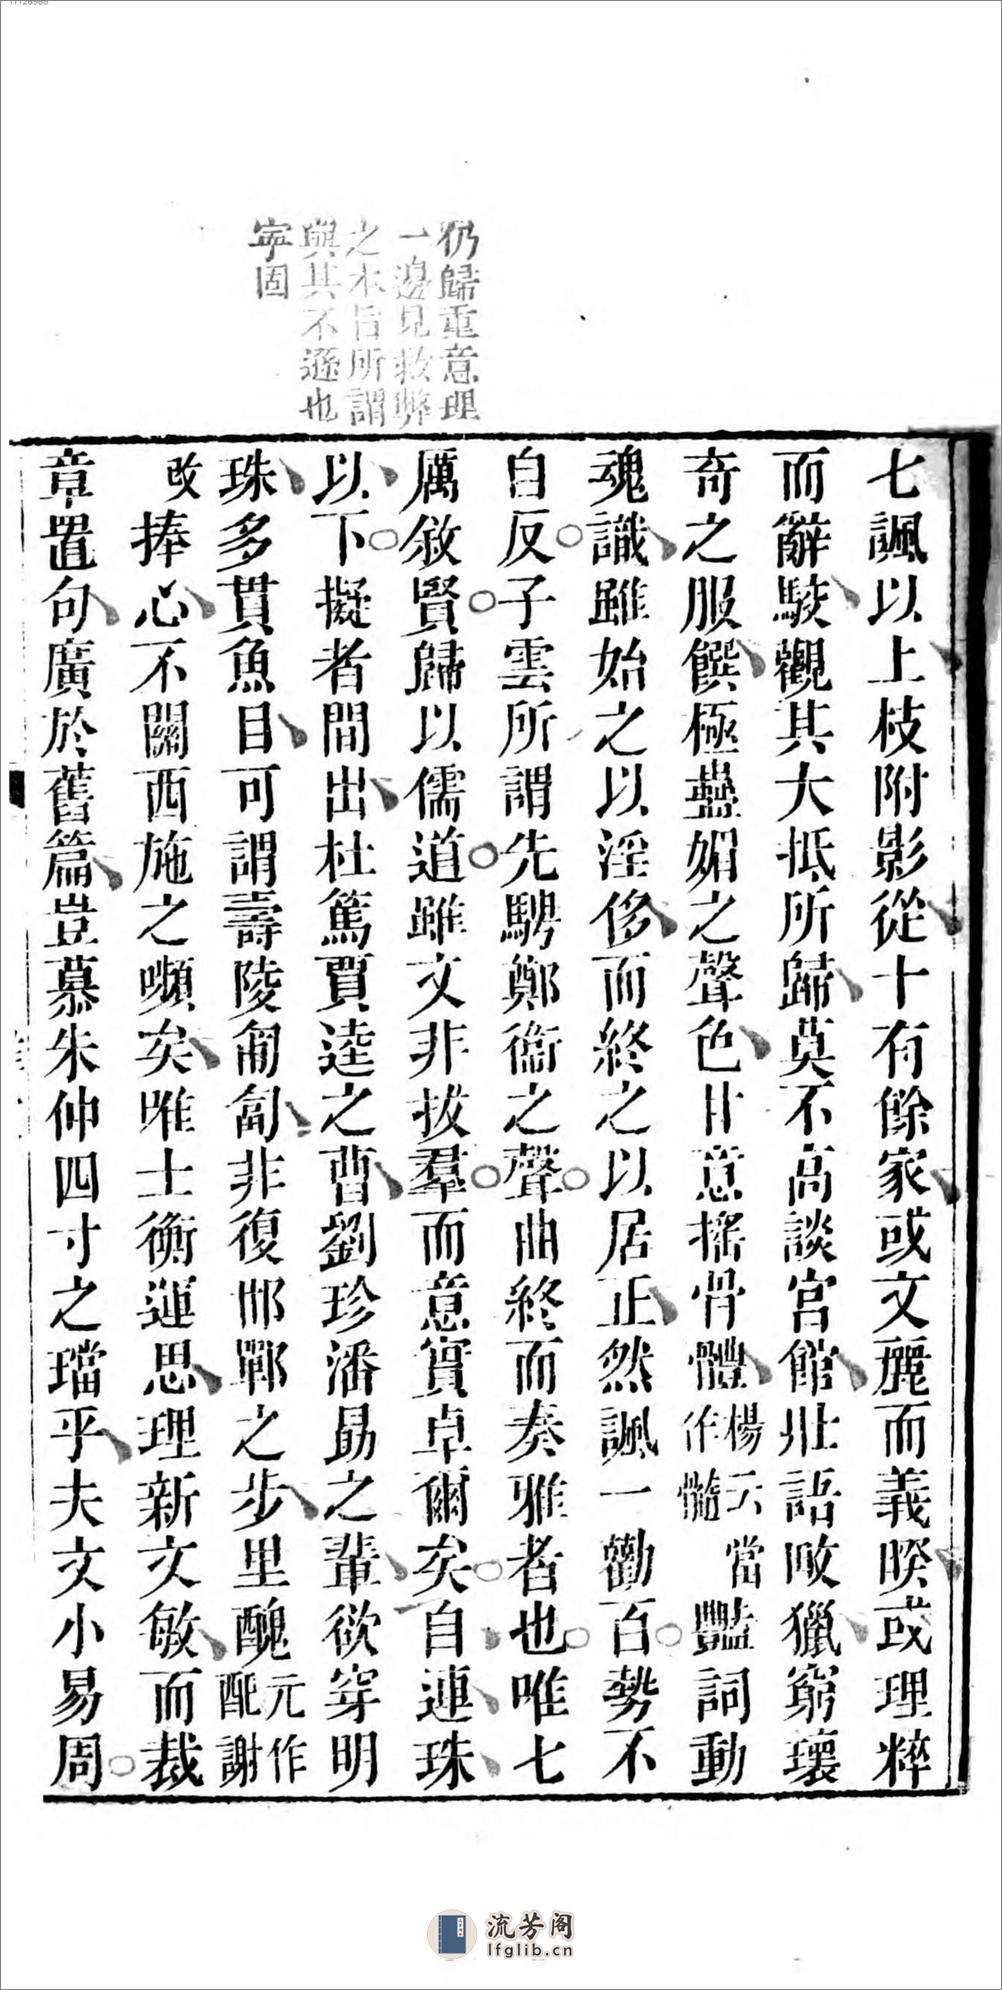 仍歸重意理
一邊見救弊
之本旨所謂
與其不遜也
寧固
七諷以上枝附影從十有餘家或文麗而義暌或理粹
而辭駁觀其大抵所歸莫不高談宮館壯語畋獵窮瓌
奇之服饌極蠱媚之聲色甘意搖骨體楊云當作髓豔詞動
魂識雖始之以淫侈而終之以居正然諷一勸百勢不
自反子雲所謂先騁鄭衞之聲曲終而奏雅者也唯七
厲敘賢歸以儒道雖文非拔羣而意實卓爾矣自連珠
以下擬者間出杜篤賈逵之曹劉珍潘勗之輩欲穿明
珠多貫魚目可謂壽陵匍匐非復邯鄲之步里醜元作配謝
改捧心不關西施之嚬矣唯士衡運思理新文敏而裁
章置句廣於舊篇豈慕朱仲四寸之璫乎夫文小易周
流芳阁
lfglib.cn